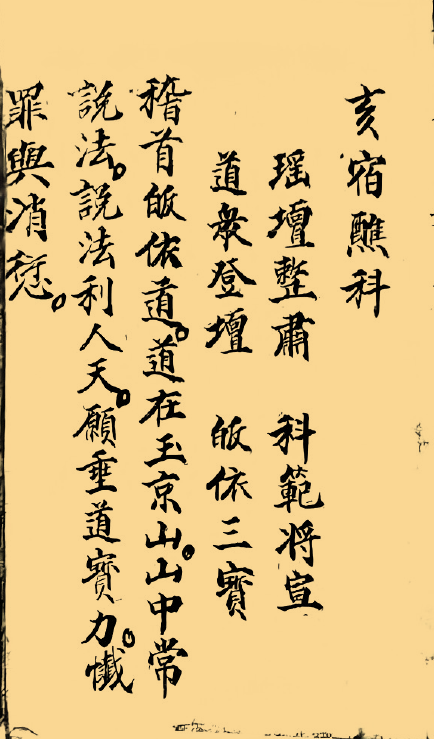 亥宿醮科
瑶壇整肅　科範將宣
道衆登壇　皈依三寳
稽首皈依道。道在玉京山。山中常
說法。說法利人天。願垂道寳力。懺
罪與消愆。